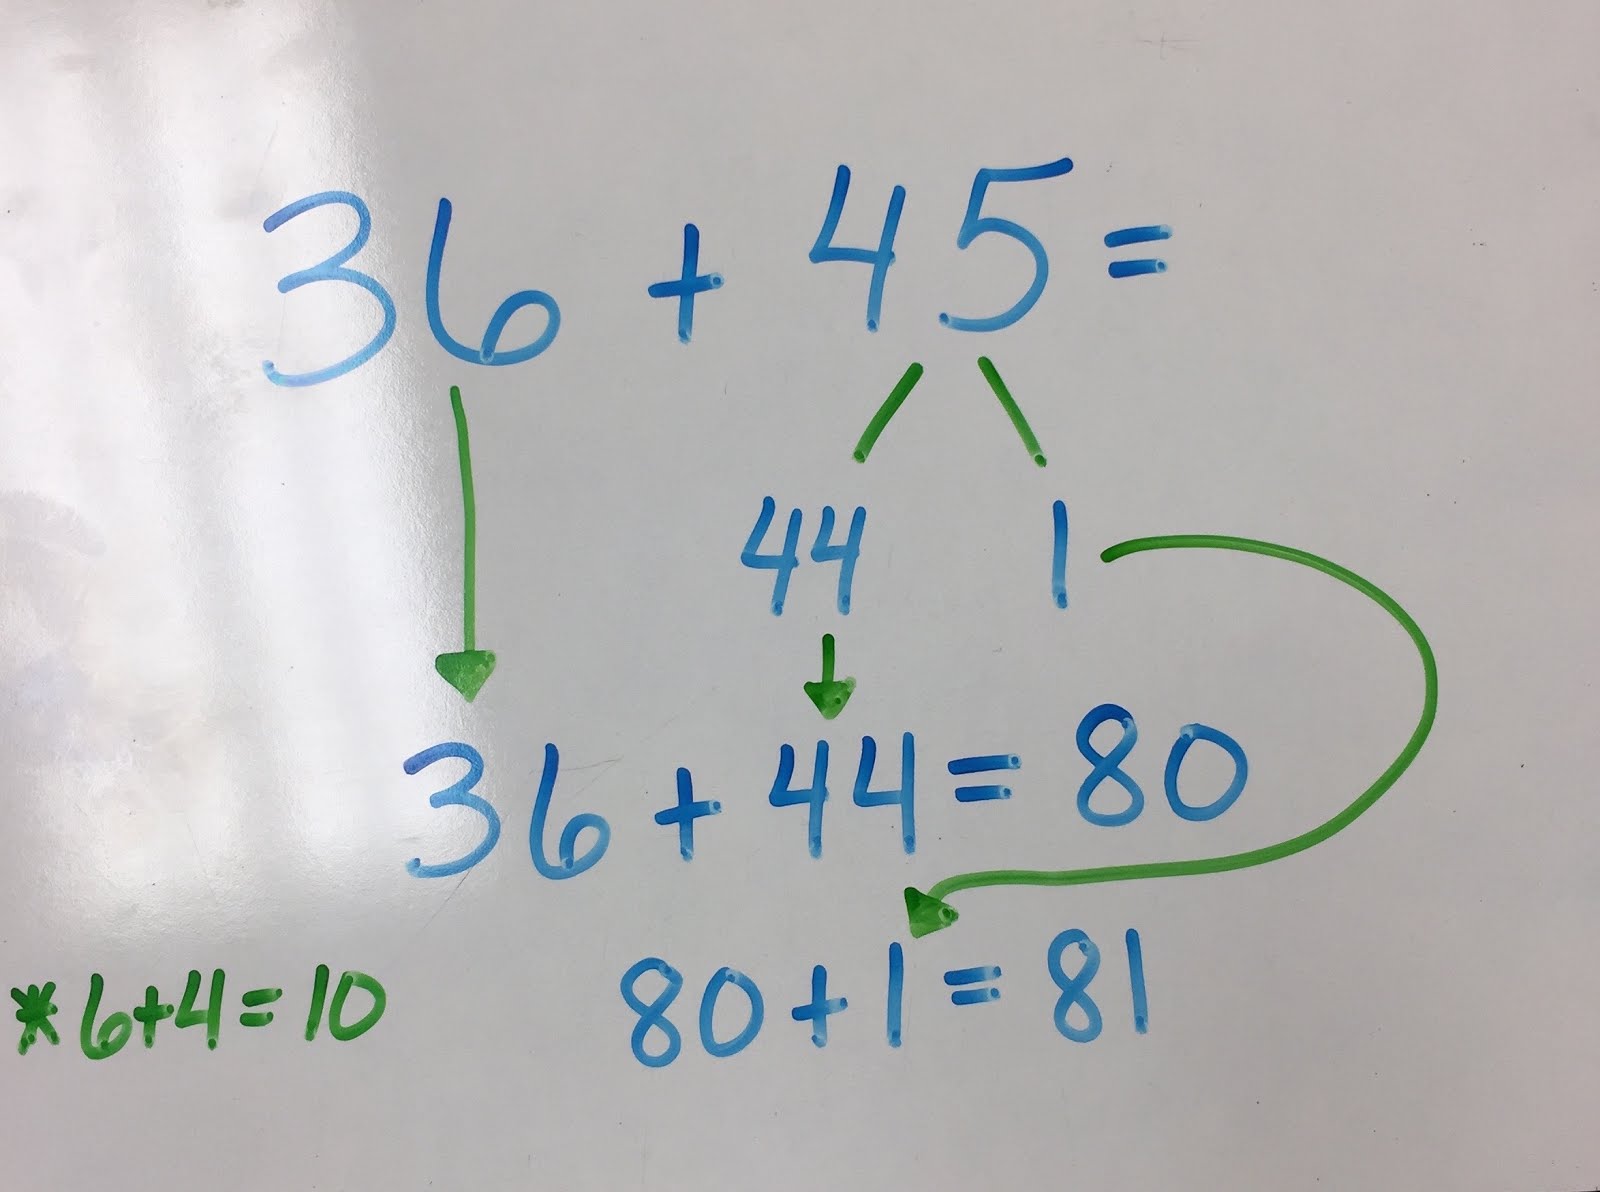 36 + 45 =
44 1
36 + 44 = 80
80 + 1 = 81
* 6 + 4 = 10